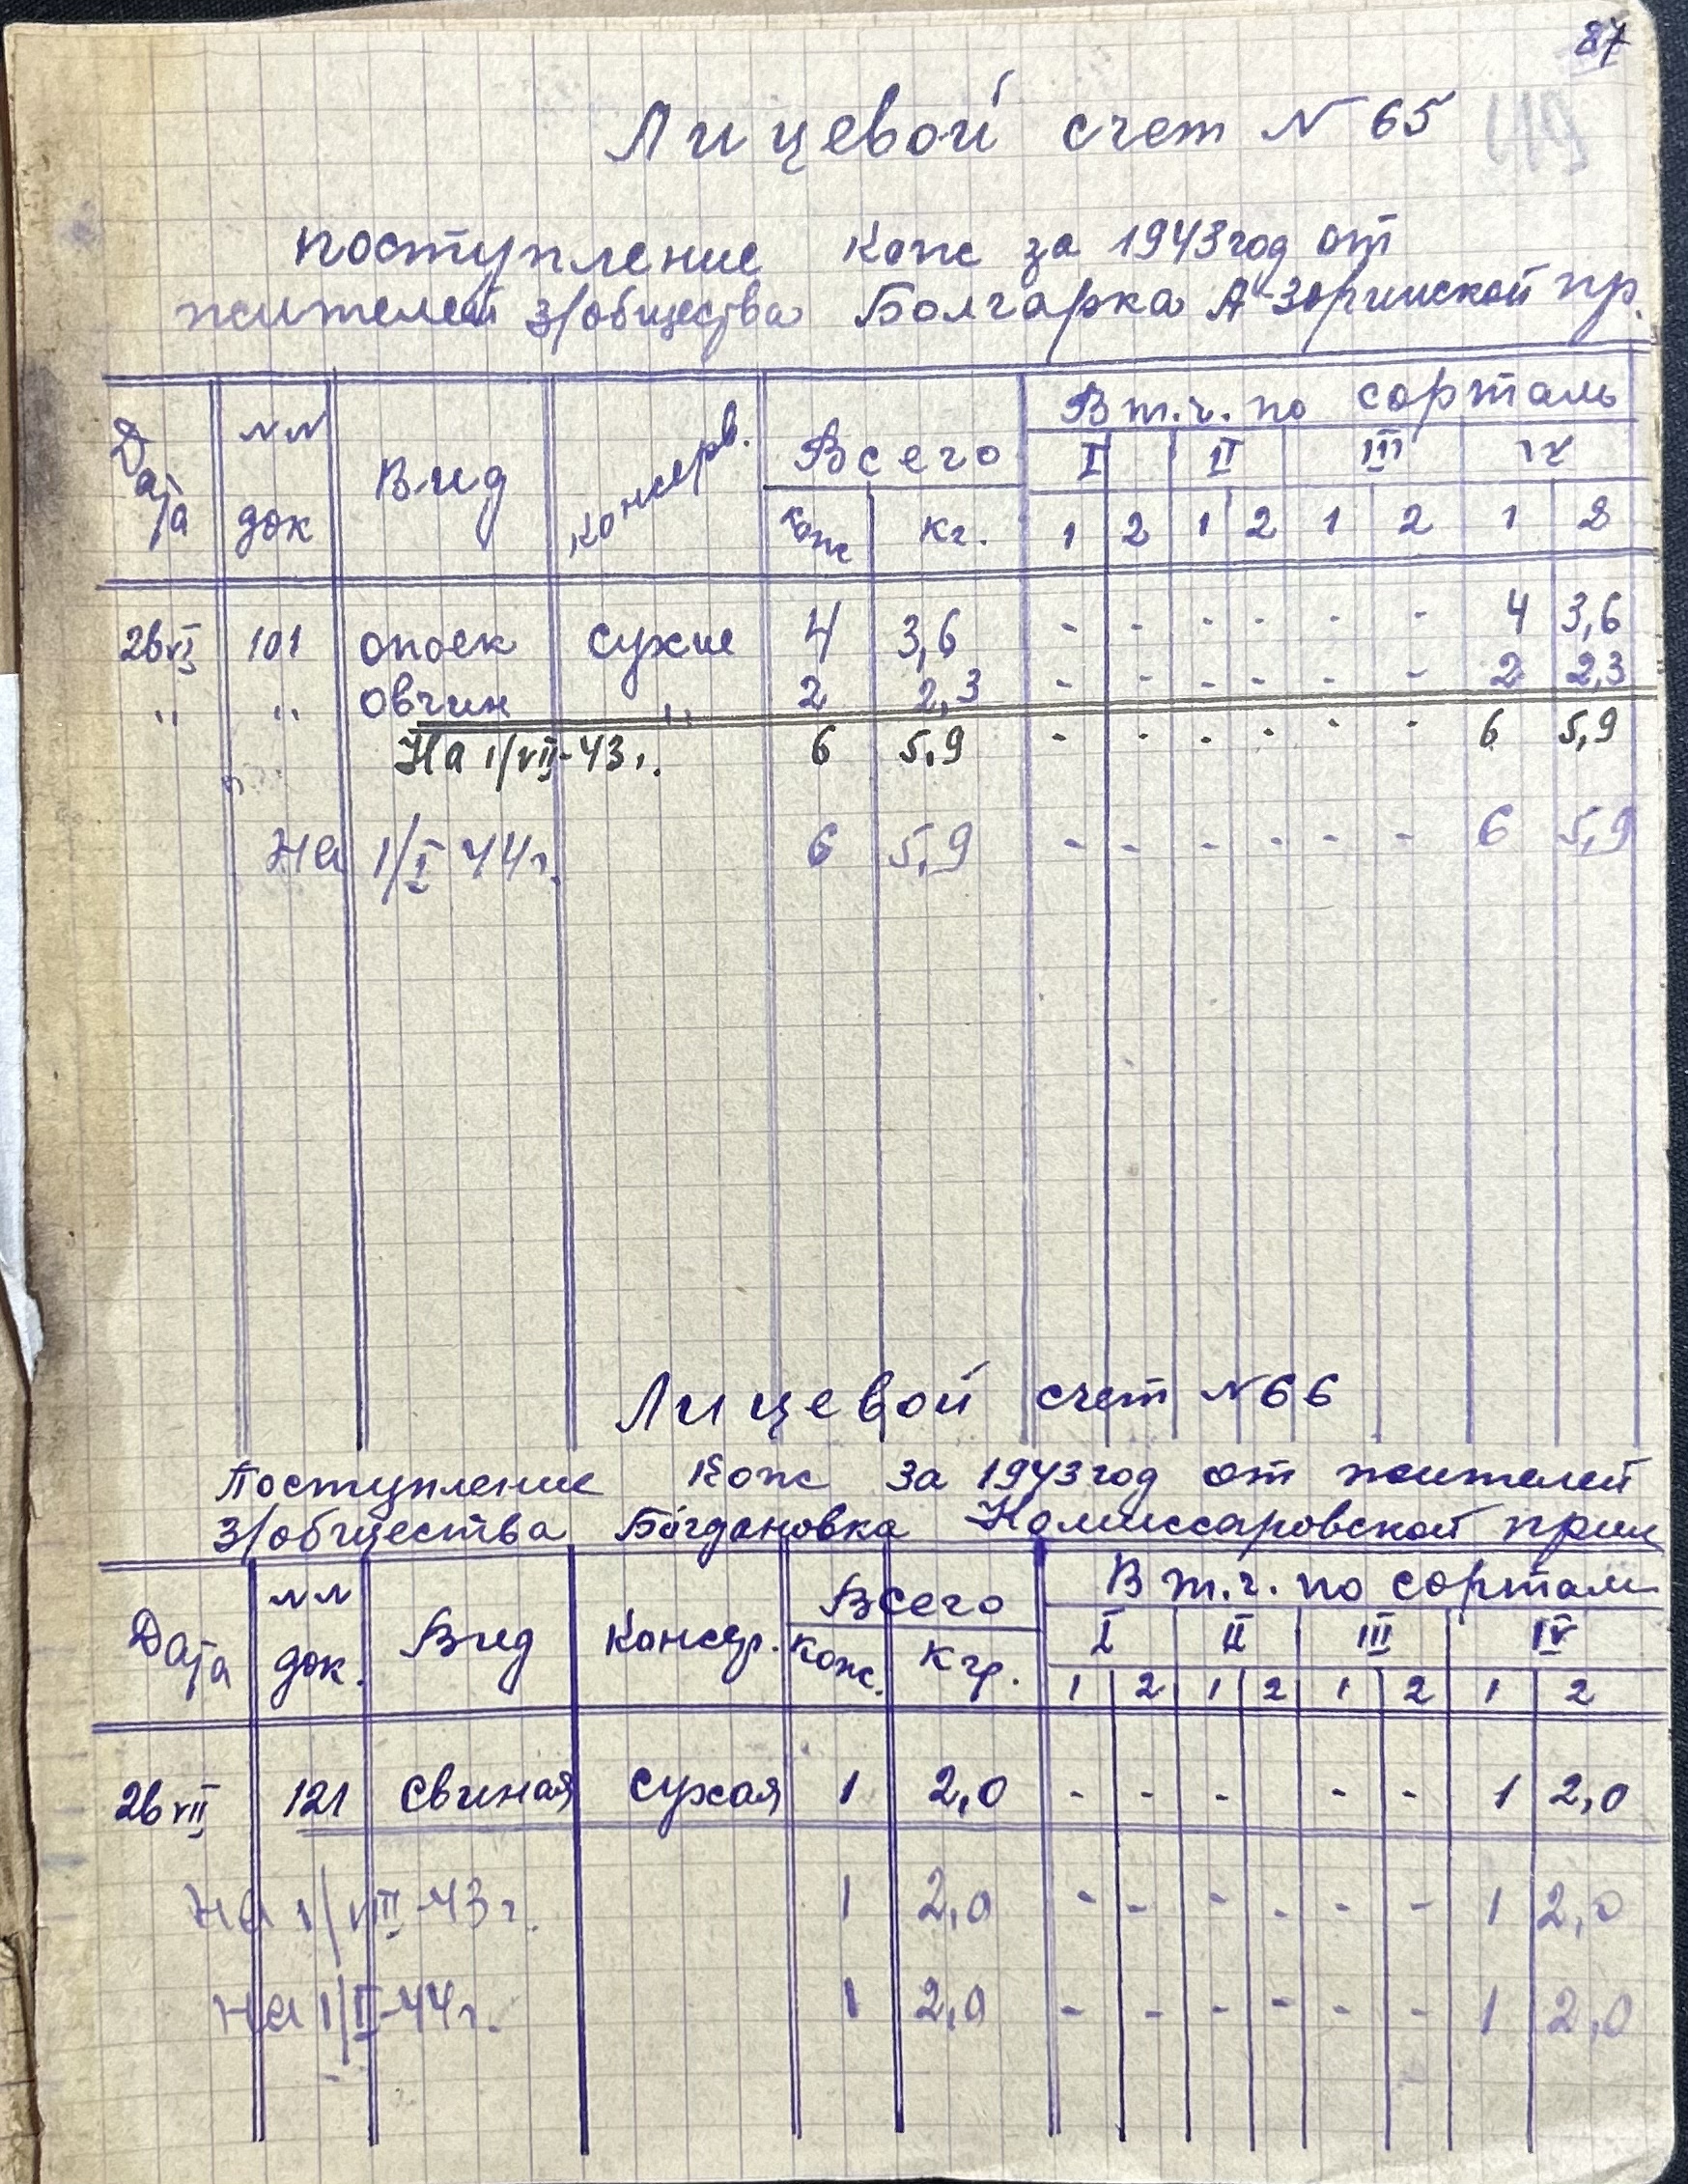 87
419
Лицевой счет № 65
поступление кож за 1943 год от
жителей з/общества Болгарка А-Зоринской пр.
Дата №№ док Вид консерв. Всего В т.ч. по сортам
I II III IV
кож кг. 1 2 1 2 1 2 1 2
26 VI 101 опоек сухие 4 3,6 - - - - - - 4 3,6
" " овчин " 2 2,3 - - - - - - 2 2,3
На 1/VII-43 г. 6 5,9 - - - - - - 6 5,9
на 1/I 44 г. 6 5,9 - - - - - - 6 5,9
Лицевой счет № 66
Поступление кож за 1943 год от жителей
з/общества Богдановка Комиссаровской прим
Дата №№ док. Вид Консер. Всего В т.ч. по сортам
I II III IV
кож. кгр. 1 2 1 2 1 2 1 2
26 VII 121 свиная сухая 1 2,0 - - - - - 1 2,0
на 1/VIII-43 г. 1 2,0 - - - - - - 1 2,0
на 1/I-44 г. 1 2,0 - - - - - - 1 2,0